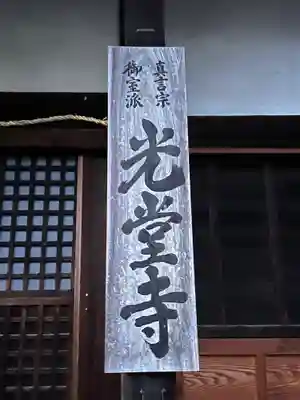 真言宗
御室派
光堂寺